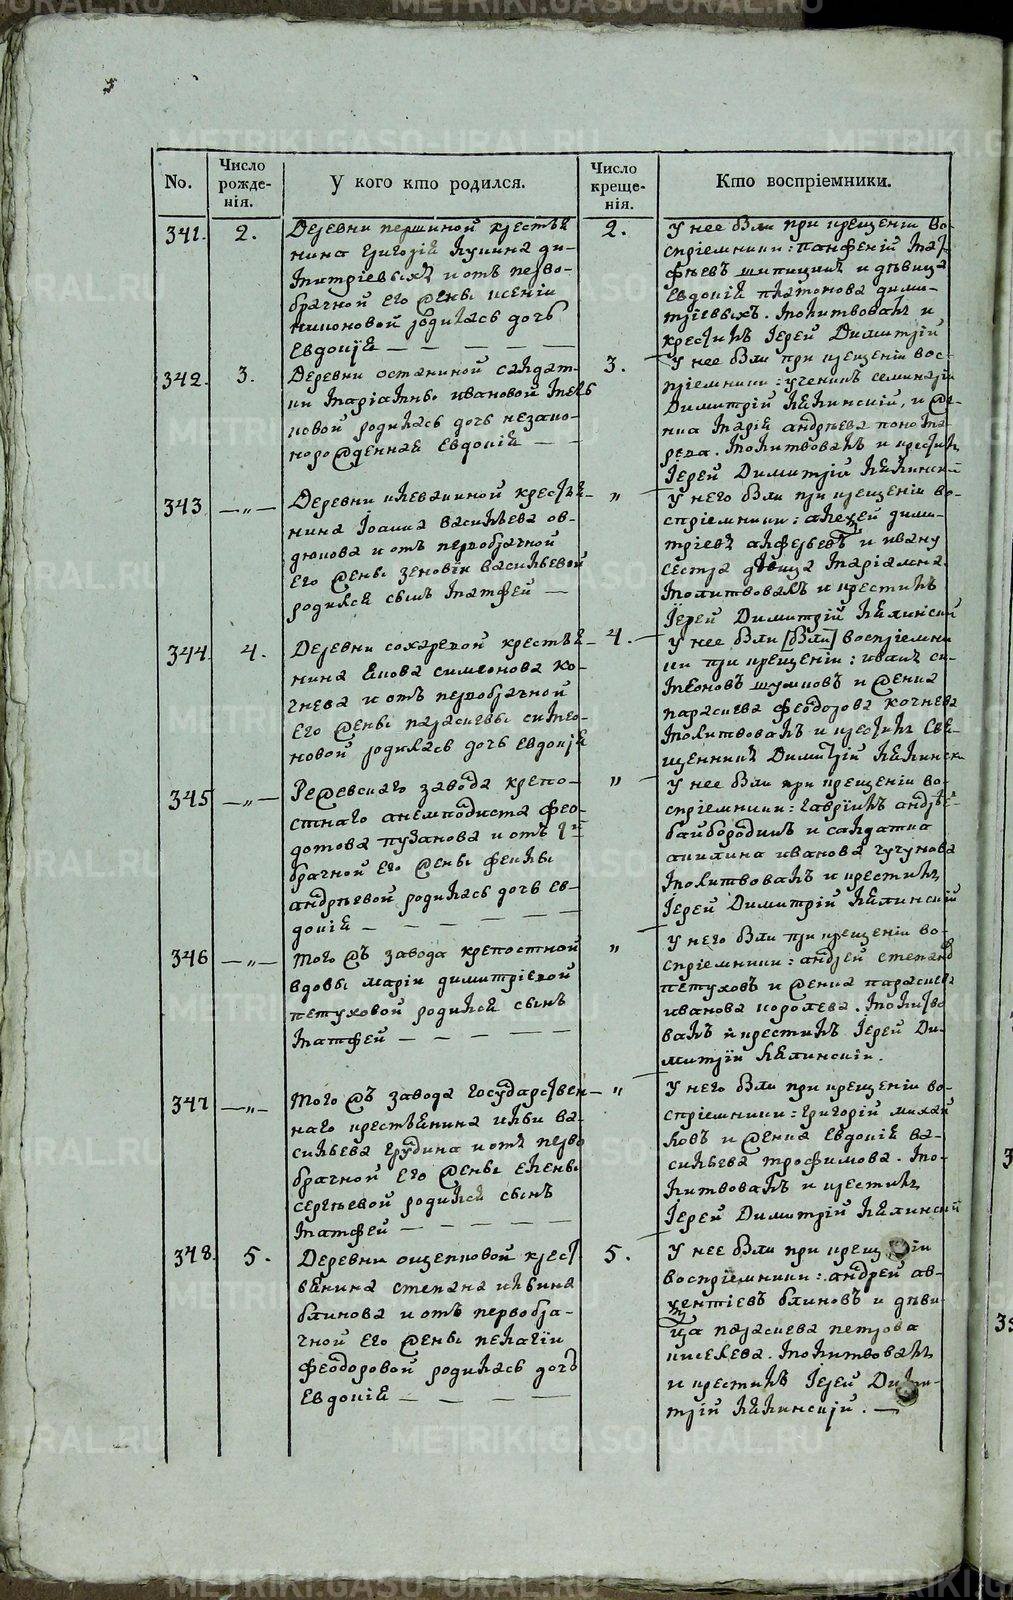 METRIKI.GASO-URAL.RU
No.
Число рожде-нія.
У кого кто родился.
Число креще-нія.
Кто воспріемники.
341.
2.
Деревни першиной крестья
нина Григорія Лукина ди-
митріевыхъ и отъ перво-
брачной его жены ксеніи
родилась дочь
Евдокія — — — — —
2.
У нее были при крещеніи во-
спріемники: панфеній
шипицинъ и дѣвица
Евдокія платонова дими-
тріевыхъ. молитвовалъ и
крестилъ Іерей Димитрій
342.
3.
Деревни останиной салдат-
ки маріамны ивановой
новой родилась дочь незако-
норожденная Евдокія — —
3.
У нее были при крещеніи вос-
пріемники: ученикъ семинаріи
Димитрій Калинскій, и же-
нка марія андреева понома-
рева. молитвовалъ и крестилъ
Іерей Димитрій Калинскій
343
—„—
Деревни клевакиной крестья-
нина Іоанна васильева ов-
дюкова и отъ первобрачной
его жены зеновіи васильевой
родился сынъ матфей —
„
У него были при крещеніи во-
спріемники: алексей дими-
тріевъ алферьевъ и ивану
сестра дѣвица маріамна.
молитвовалъ и крестилъ
Іерей Димитрій Калинскій
344.
4.
Деревни сохаревой крестья-
нина Якова симеонова ко-
чнева и отъ первобрачной
его жены парасковы симео-
новой родилась дочь Евдокія
4.
У нее были [были] воспріемни
ки при крещеніи: иванъ си-
меоновъ шумковъ и женка
парасковa феодорова кочнева
молитвовалъ и крестилъ Свя-
щенникъ Димитрій Калински
345
—„—
Режевскаго завода крепо-
стнаго анемподиста фео-
дотова пузанова и отъ 1й
брачной его жены феклы
андреевой родилась дочь ев-
докія — — — —
„
У нее были при крещеніи во-
спріемники: гавріилъ андре-
байбородинъ и салдатка
акилина иванова чугунова
молитвовалъ и крестилъ
Іерей Димитрій Калинскій
346
—„—
того жъ завода крепостной
вдовы маріи димитріевой
петуховой родился сынъ
матфей — — — —
„
У него были при крещеніи во-
спріемники: андрей степанов
петуховъ и женка парасковa
иванова королева. молитво
валъ и крестилъ Іерей Ди-
митрій Калинскій.
347
—„—
того жъ завода государствен-
наго крестьянина ильи ва-
сильева грудина и отъ перво
брачной его жены елены
сергеевой родился сынъ
матфей — — — —
„
У него были при крещеніи во-
спріемники: григорій михай
ловъ и женка евдокія ва-
сильева трофимова. мо-
литвовалъ и крестилъ
Іерей Димитрій Калинскій
348.
5.
Деревни ощепковой крест
ьянина степана ильина
блинова и отъ первобра-
чной его жены пелагіи
феодоровой родилась дочь
Евдокія — — — —
5.
У нее были при крещеніи
воспріемники: андрей ав-
ксентіевъ блиновъ и дѣви-
ца парасковa петрова
киселева. молитвовалъ
и крестилъ Іерей Дими-
трій Калинскій. —